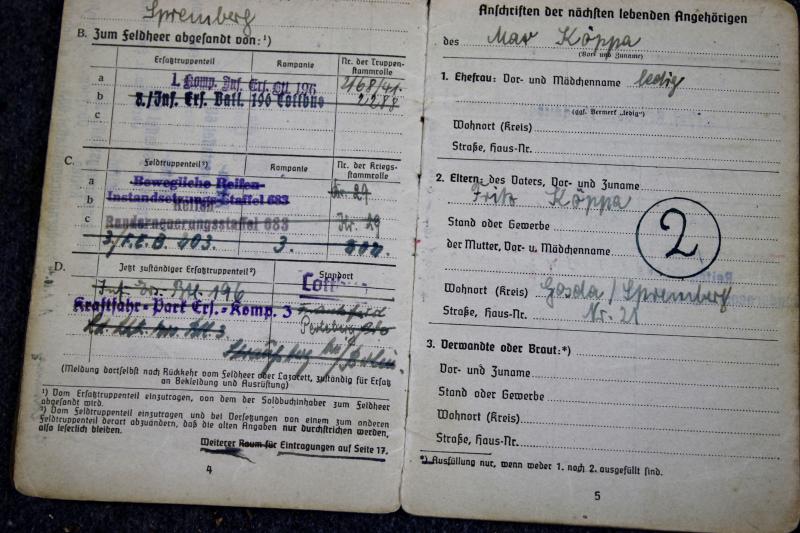 Spremberg
B. Zum Feldheer abgesandt von:¹)
Ersatztruppenteil
Kompanie
Nr. der Truppen-
stammrolle
a
1. Komp. Inf. Ers. Btl 196
2168/41.
b
Inf. Ers. Batl. 196 Cottbus
2288
c
C.
Feldtruppenteil²)
Kompanie
Nr. der Kriegs-
stammrolle
a
Bewegliche Reifen-
Nr. 27
b
Instandsetzungs-Staffel 683
Reifen-
c
Runderneuerungsstaffel 683
Nr. 29
3.
D.
Jetzt zuständiger Ersatztruppenteil²)
Standort
196
Cott
Kraftfahr-Park Ers.-Komp. 3
(Meldung dortselbst nach Rückkehr vom Feldheer oder Lazarett, zuständig für Ersatz
an Bekleidung und Ausrüstung)
¹) Vom Ersatztruppenteil einzutragen, von dem der Soldbuchinhaber zum Feldheer
abgesandt wird.
²) Vom Feldtruppenteil einzutragen und bei Versetzungen von einem zum anderen
Feldtruppenteil derart abzuändern, daß die alten Angaben nur durchstrichen werden,
also leserlich bleiben.
Weiterer Raum für Eintragungen auf Seite 17.
4
Anschriften der nächsten lebenden Angehörigen
des Max Köppa
(Vor- und Zuname)
1. Ehefrau: Vor- und Mädchenname ledig
(ggf. Vermerk „ledig")
Wohnort (Kreis)
Straße, Haus-Nr.
2. Eltern: des Vaters, Vor- und Zuname
Fritz Köppa
Stand oder Gewerbe
2
der Mutter, Vor- u. Mädchenname
Wohnort (Kreis) Gosda/Spremberg
Straße, Haus-Nr. Nr. 21
3. Verwandte oder Braut:*)
Vor- und Zuname
Stand oder Gewerbe
Wohnort (Kreis)
Straße, Haus-Nr.
*) Ausfüllung nur, wenn weder 1. noch 2. ausgefüllt sind.
5